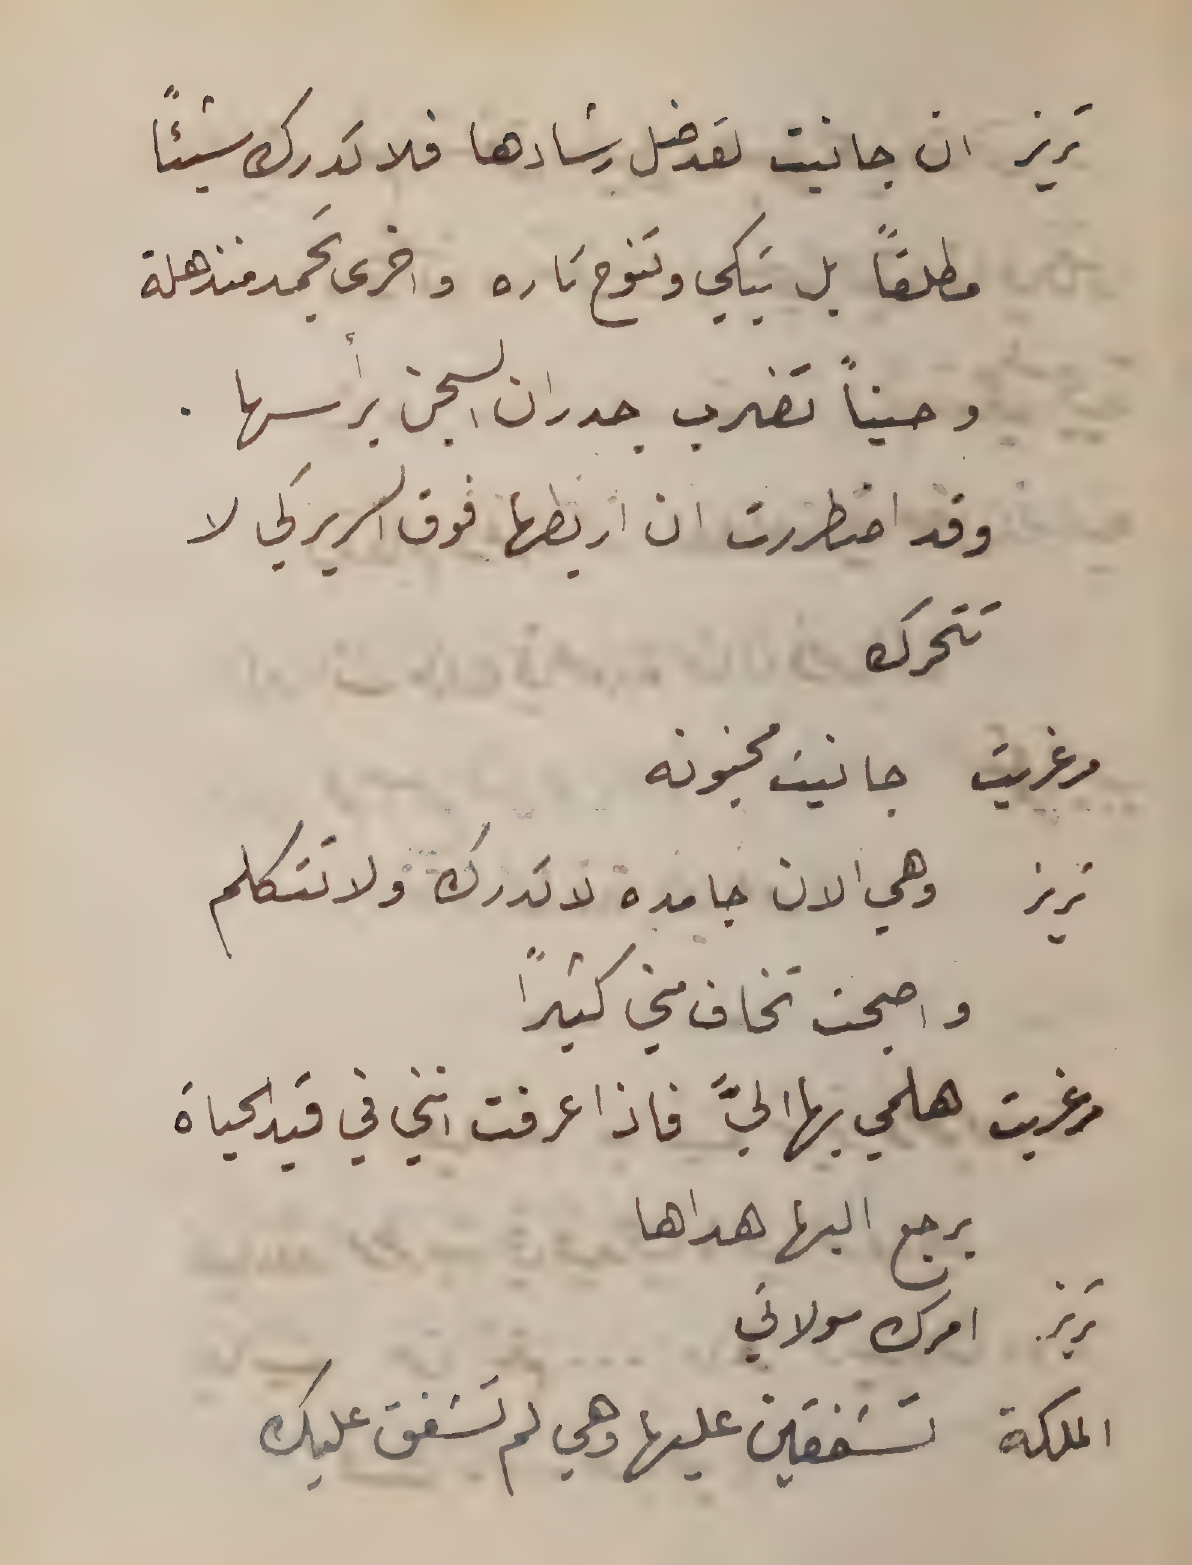 تريز ان جانيت لقد ضل رشادها فلا تدرك شيئاً
مطلقاً بل تبكي وتنوح تاره واخرى تجمد منذهلة
وحيناً تضرب جدران السجن برأسها .
وقد اضطررت ان اربطها فوق السرير لكي لا
تتحرك
مرغريت جانيت مجنونه
تريز وهي الان جامدة لا تدرك ولا تتكلم
واصبحت تخاف مني كثيراً
مرغريت هلمي بها اليَّ فاذا عرفت انني في قيد الحياة
يرجع اليها هداها
تريز امرك مولاتي
الملكة تشفقين عليها وهي لم تشفق عليك